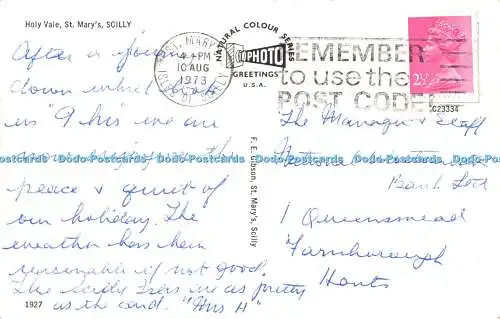 Holy Vale, St. Mary's, SCILLY
After a journey
down which took
us "9 hrs" we are
peace & quiet of
our holiday. The
weather has been
reasonable if not good.
The Scilly Isles are as pretty
as the card. "Mrs H"
1927
ST. MARY'S
4 - PM
10 AUG
1973
ISLES OF SCILLY
NATURAL COLOUR SERIES
PHOTO
GREETINGS
U.S.A.
F. E. Gibson, St. Mary's, Scilly
REMEMBER
to use the
POST CODE
2½
C23334
The Manager & Staff
National
Bank Ltd
1 Queensmead
Farnborough
Hants
Dodo-Postcards Dodo-Postcards Dodo-Postcards Dodo-Postcards Dodo-Postcards Dodo-Postcards